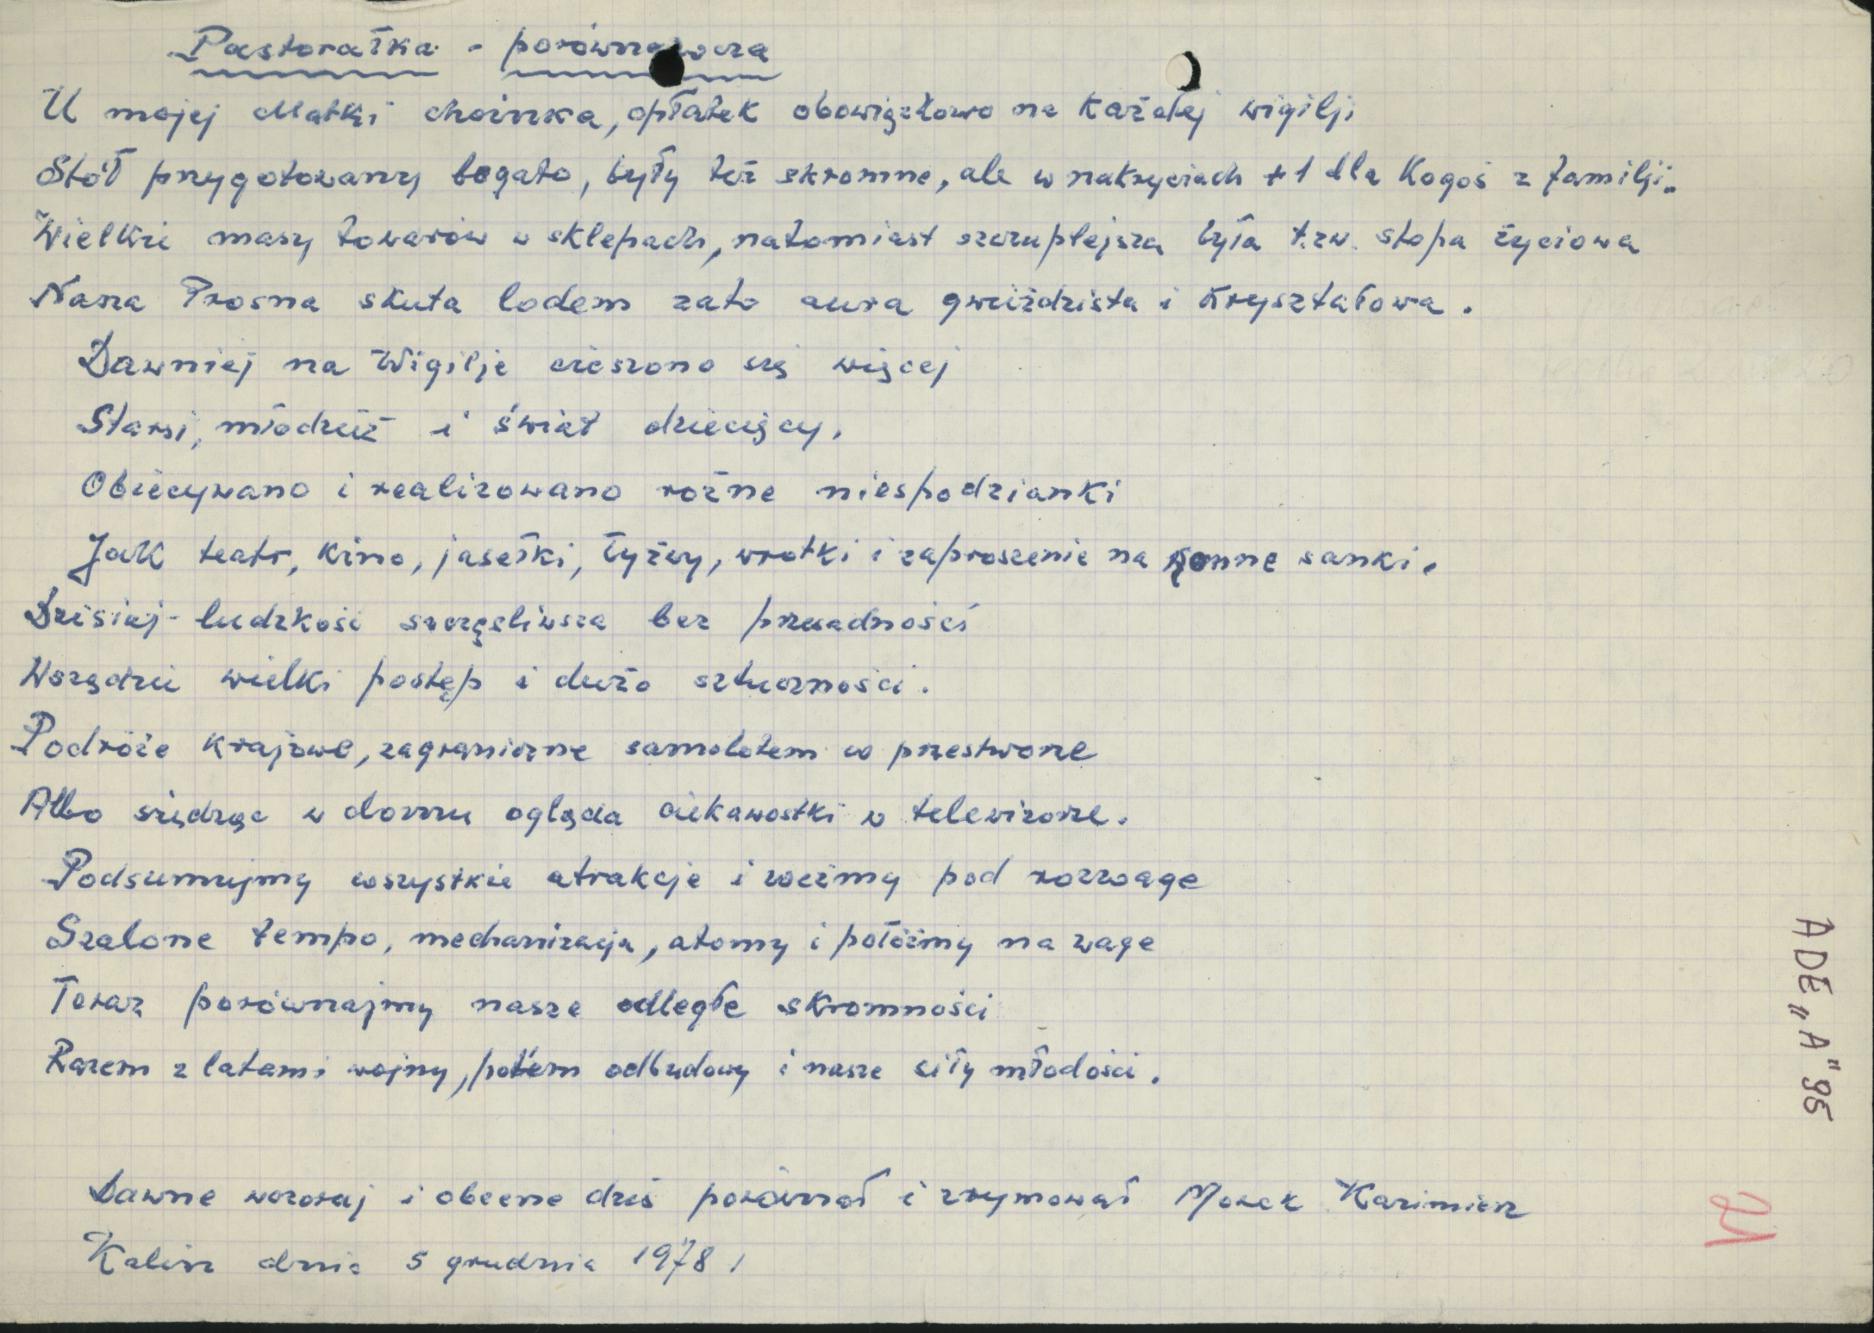 Pastorałka - porównawcza
U mojej Matki choinka, opłatek obowiązkowo na każdej wigilji
Stół przygotowany bogato, były też skromne, ale w nakryciach +1 dla Kogoś z familji.
Wielkie masy towarów w sklepach, natomiast szczuplejsza była t.zw. stopa życiowa
Nasza Prosna skuta lodem zato aura gwieździsta i Kryształowa.
Dawniej na Wigilje cieszono się więcej
Starsi, młodzież i świat dziecięcy.
Obiecywano i realizowano rożne niespodzianki
Jak teatr, Kino, jasełki, łyżwy, wrotki i zaproszenie na konne sanki.
Dzisiaj - ludzkość szczęśliwsza bez przesadności
Wszędzie wielki postęp i dużo sztuczności.
Podróże krajowe, zagraniczne samolotem w przestworze
Albo siedząc w domu ogląda ciekawostki w telewizorze.
Podsumujmy wszystkie atrakcje i weźmy pod rozwage
Szalone tempo, mechanizacja, atomy i połóżmy na wage
Teraz porównajmy nasze odległe skromności
Razem z latami wojny, potem odbudowy i nasze siły młodości.
Dawne wczoraj i obecne dziś porównał i zrymował Marek Kazimierz
Kalisz dnia 5 grudnia 1978
ADE „A" 95
21